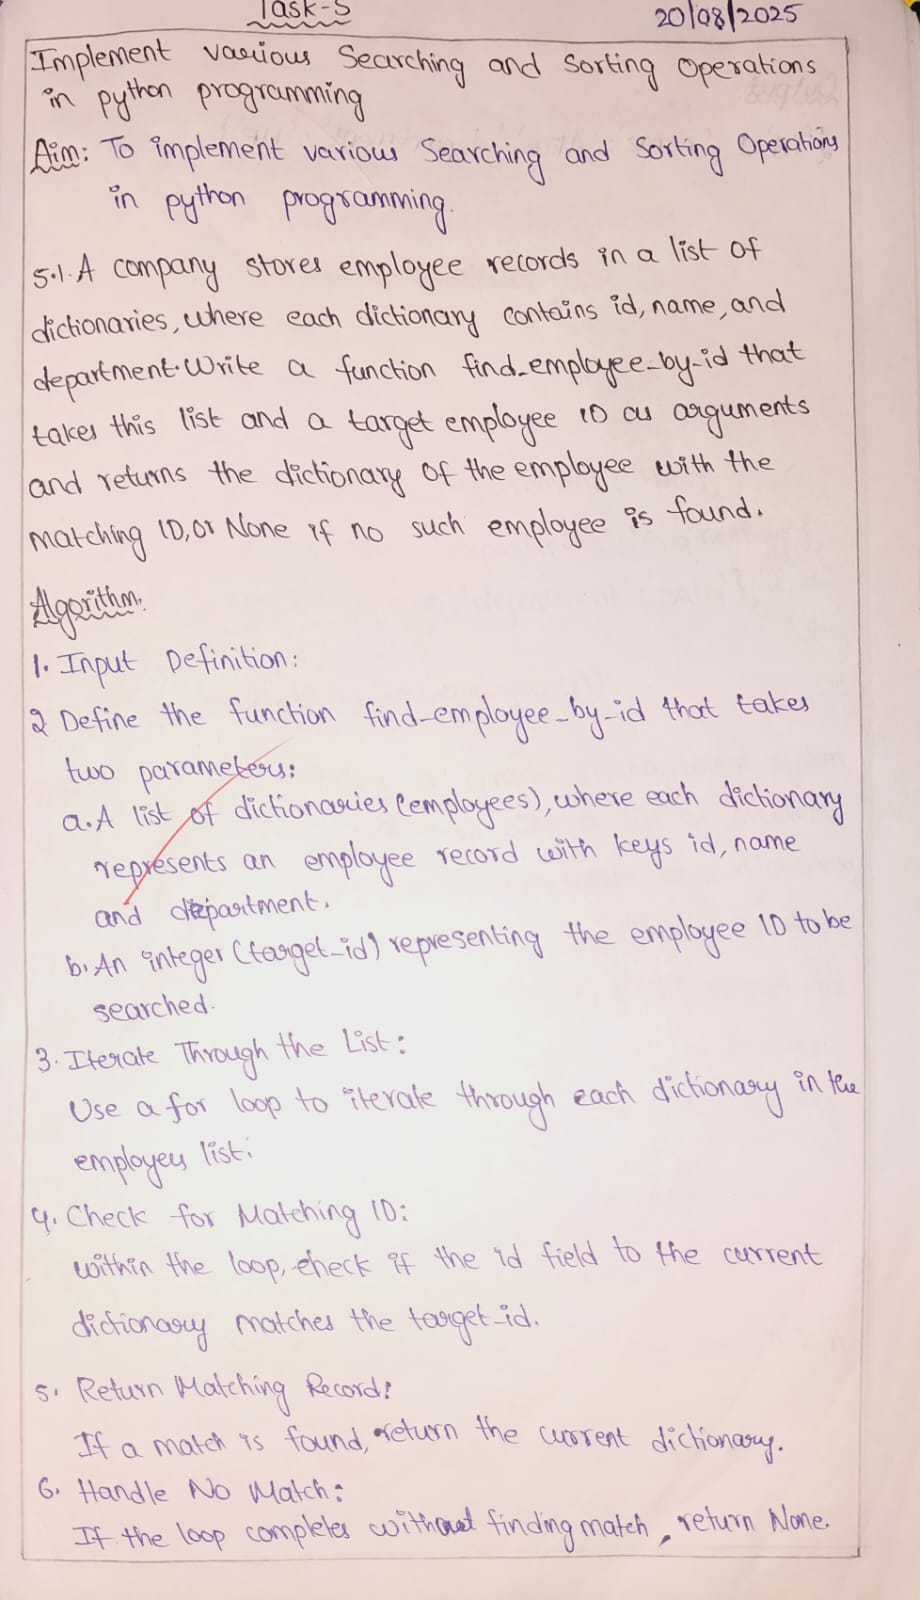 Task-5
20/08/2025
Implement various Searching and Sorting Operations
in python programming
Aim: To implement various Searching and Sorting Operations
in python programming.
5.1. A company stores employee records in a list of
dictionaries, where each dictionary contains id, name, and
department. Write a function find_employee_by_id that
takes this list and a target employee ID as arguments
and returns the dictionary of the employee with the
matching ID, or None if no such employee is found.
Algorithm:
1. Input Definition:
2 Define the function find_employee_by_id that takes
two parameters:
a. A list of dictionaries (employees), where each dictionary
represents an employee record with keys id, name
and department.
b. An integer (target_id) representing the employee ID to be
searched.
3. Iterate Through the List:
Use a for loop to iterate through each dictionary in the
employees list.
4. Check for Matching ID:
within the loop, check if the id field to the current
dictionary matches the target_id.
5. Return Matching Record:
If a match is found, return the current dictionary.
6. Handle No Match:
If the loop completes without finding match, return None.